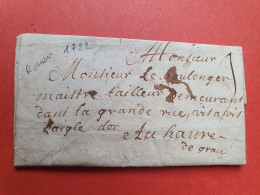 Rouen 1722
Monsieur
Monsieur le boulenger
maistre tailleur demeurant
dans la grande rue, vis a vis
Laigle dor
Au havre
de grace